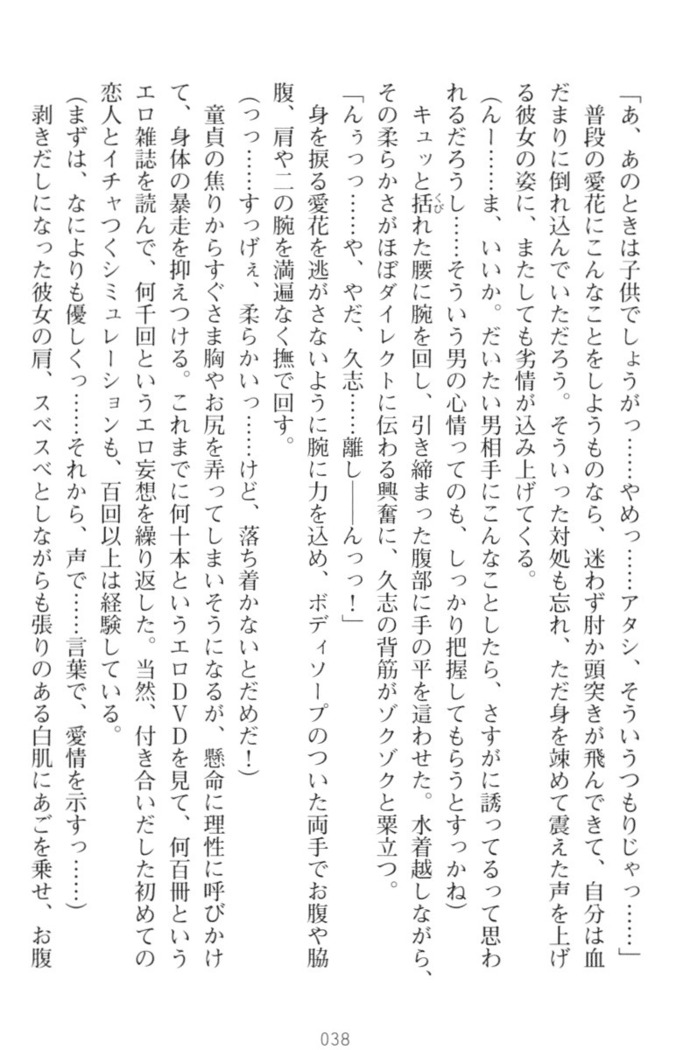 「あ、あのときは子供でしょうがっ……やめっ……アタシ、そういうつもりじゃっ……」
普段の愛花にこんなことをしようものなら、迷わず肘か頭突きが飛んできて、自分は血
だまりに倒れ込んでいただろう。そういった対処も忘れ、ただ身を竦めて震えた声を上げ
る彼女の姿に、またしても劣情が込み上げてくる。
(んー……ま、いいか。だいたい男相手にこんなことしたら、さすがに誘ってるって思わ
れるだろうし……そういう男の心情ってのも、しっかり把握してもらうとすっかね)
キュッと括れた腰に腕を回し、引き締まった腹部に手の平を這わせた。水着越しながら、
くび
その柔らかさがほぼダイレクトに伝わる興奮に、久志の背筋がゾクゾクと粟立つ。
「んぅっっ……や、やだ、久志……離し――んっっ!」
身を捩る愛花を逃がさないように腕に力を込め、ボディソープのついた両手でお腹や脇
腹、肩や二の腕を満遍なく撫で回す。
(っっ……すっげぇ、柔らかいっ……けど、落ち着かないとだめだ!)
童貞の焦りからすぐさま胸やお尻を弄ってしまいそうになるが、懸命に理性に呼びかけ
て、身体の暴走を抑えつける。これまでに何十本というエロDVDを見て、何百冊という
エロ雑誌を読んで、何千回というエロ妄想を繰り返した。当然、付き合いだした初めての
恋人とイチャつくシミュレーションも、百回以上は経験している。
(まずは、なによりも優しくっ……それから、声で……言葉で、愛情を示すっ……)
剥きだしになった彼女の肩、スベスベとしながらも張りのある白肌にあごを乗せ、お腹
038